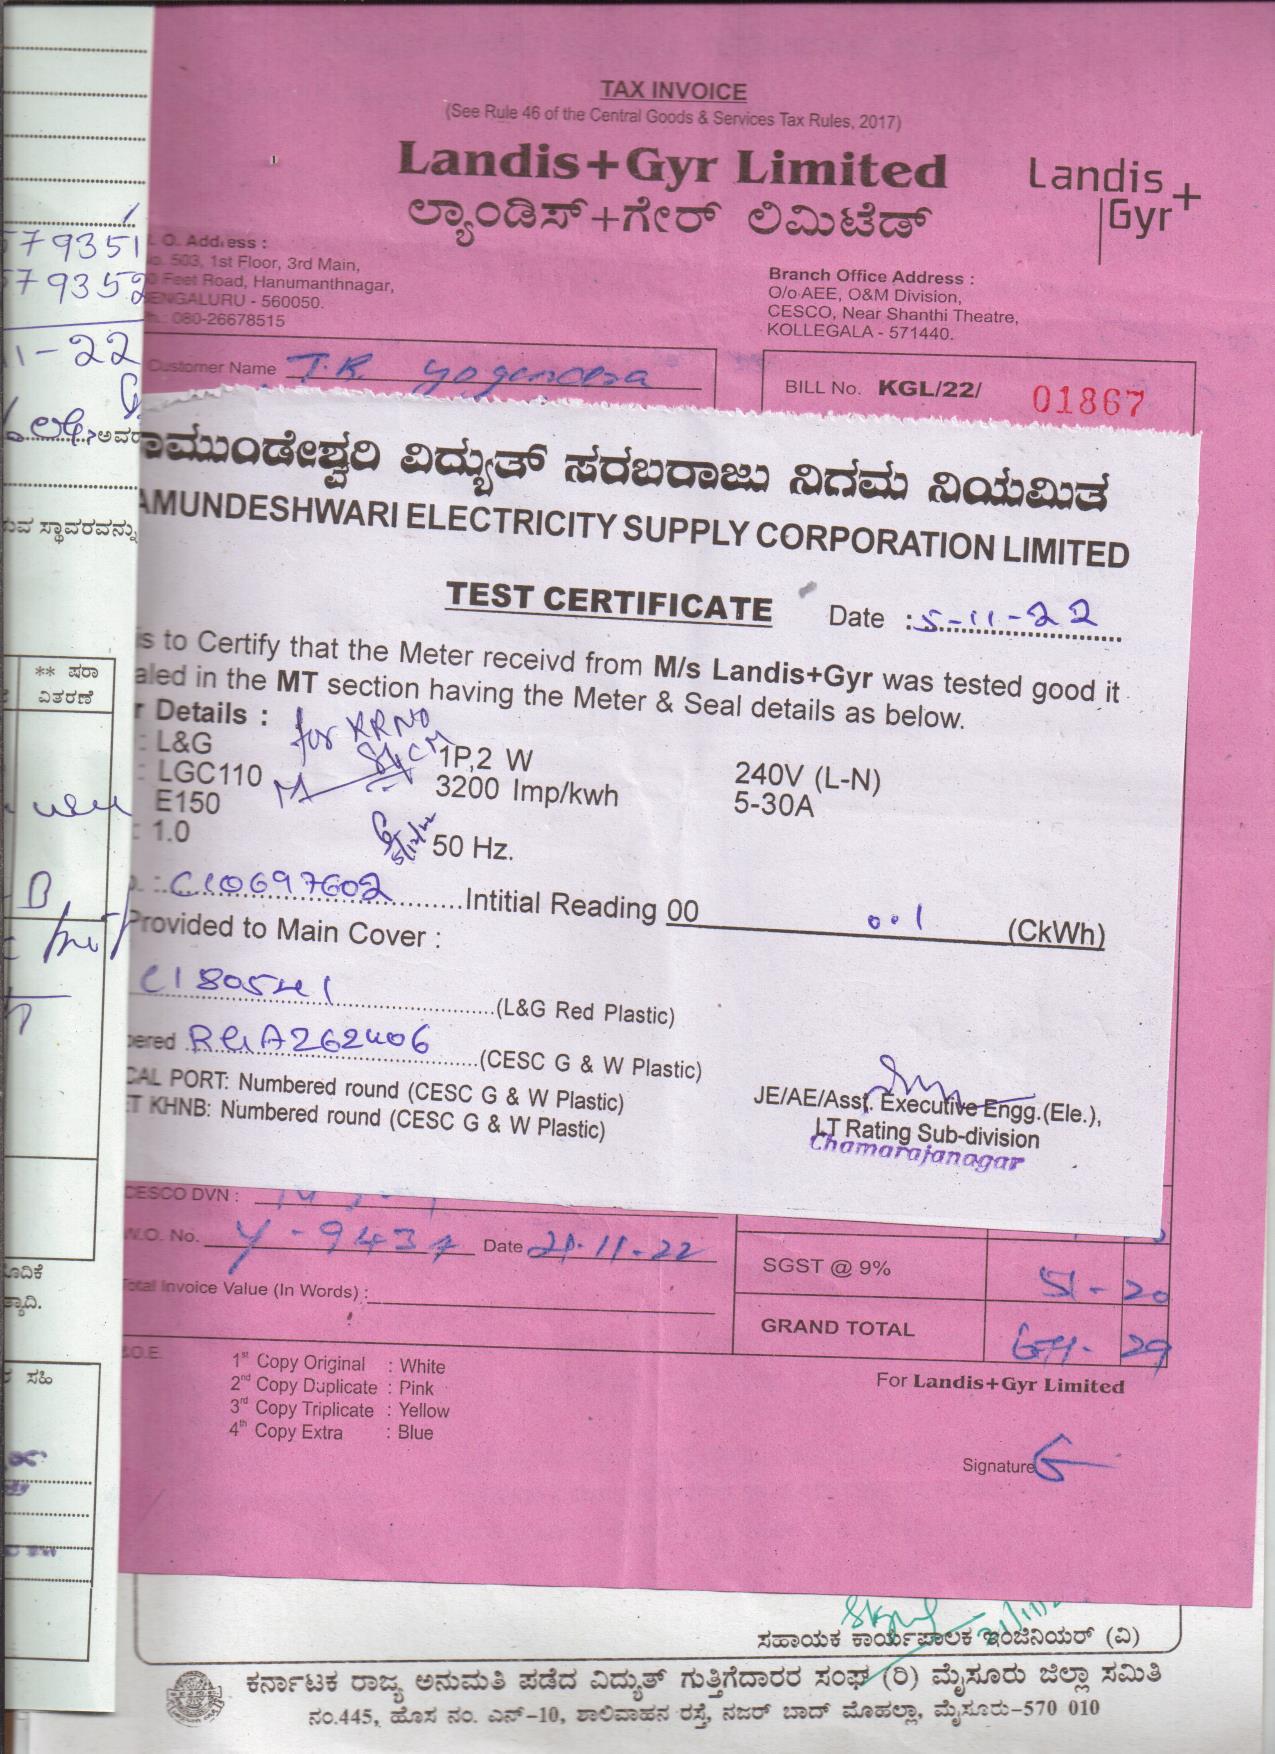 TAX INVOICE
(See Rule 46 of the Central Goods & Services Tax Rules, 2017)
Landis+Gyr Limited
ಲ್ಯಾಂಡಿಸ್+ಗೇರ್ ಲಿಮಿಟೆಡ್
Landis
Gyr+
. O. Address :
o. 503, 1st Floor, 3rd Main,
0 Feet Road, Hanumanthnagar,
ENGALURU - 560050.
h.: 080-26678515
Branch Office Address :
O/o AEE, O&M Division,
CESCO, Near Shanthi Theatre,
KOLLEGALA - 571440.
579351
579352
11-22
Customer Name T.R.
BILL No. KGL/22/ 01867
ಅವರ
ರುವ ಸ್ಥಾವರವನ್ನು
** ಷರಾ
ವಿತರಣೆ
ಾಮುಂಡೇಶ್ವರಿ ವಿದ್ಯುತ್ ಸರಬರಾಜು ನಿಗಮ ನಿಯಮಿತ
AMUNDESHWARI ELECTRICITY SUPPLY CORPORATION LIMITED
TEST CERTIFICATE
Date : 5-11-22
is to Certify that the Meter receivd from M/s Landis+Gyr was tested good it
aled in the MT section having the Meter & Seal details as below.
r Details :
for RRNO
: L&G 1P,2 W 240V (L-N)
: LGC110 3200 Imp/kwh 5-30A
E150
: 1.0 50 Hz.
5/12/22
. : C10697602 Intitial Reading 00 0.1 (CkWh)
Provided to Main Cover :
C180541 (L&G Red Plastic)
bered RGA262406 (CESC G & W Plastic)
CAL PORT: Numbered round (CESC G & W Plastic)
ET KHNB: Numbered round (CESC G & W Plastic)
JE/AE/Asst. Executive Engg.(Ele.),
LT Rating Sub-division
Chamarajanagar
CESCO DVN :
W.O. No. Y-9437 Date 21-11-22
Total Invoice Value (In Words) :
SGST @ 9% 51-20
GRAND TOTAL 671-29
.O.E.
1st Copy Original : White
2nd Copy Duplicate : Pink
3rd Copy Triplicate : Yellow
4th Copy Extra : Blue
For Landis+Gyr Limited
Signature
ಸಹಿ
ಸಹಾಯಕ ಕಾರ್ಯಪಾಲಕ ಇಂಜಿನಿಯರ್ (ವಿ)
ಕರ್ನಾಟಕ ರಾಜ್ಯ ಅನುಮತಿ ಪಡೆದ ವಿದ್ಯುತ್ ಗುತ್ತಿಗೆದಾರರ ಸಂಘ (ರಿ) ಮೈಸೂರು ಜಿಲ್ಲಾ ಸಮಿತಿ
ನಂ.445, ಹೊಸ ನಂ. ಎನ್-10, ಶಾಲಿವಾಹನ ರಸ್ತೆ, ನಜರ್ ಬಾದ್ ಮೊಹಲ್ಲಾ, ಮೈಸೂರು-570 010